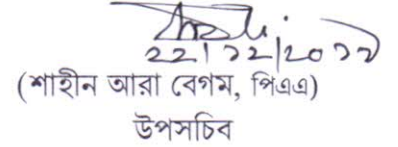 ২২/১২/২০১৯
(শাহীন আরা বেগম, পিএএ)
উপসচিব